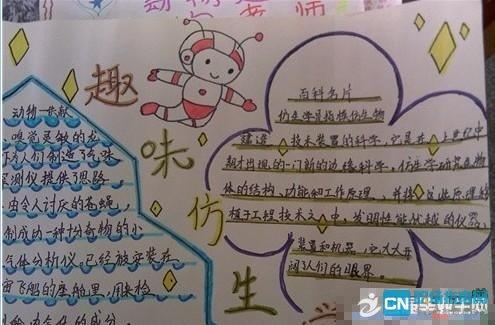 动物
老师
趣味仿生
动物一共献
嗅觉灵敏的龙
人们制造了气味
探测仪提供了思路
由令人讨厌的苍蝇,
制成功一种十分奇物的小
气体分析仪。已经被安装在
宙飞船的座舱里,用来检
舱内气体的成分。
百科名片
仿生学是指模仿生物
建造 技术装置的科学,它是在上世纪中
期才出现的一门新的边缘科学。仿生学研究生物
体的结构、功能和工作原理,并将这些原理移
植于工程技术之中,发明性能优越的仪器、
装置和机器,它大大开
阔了人们的眼界。
CN